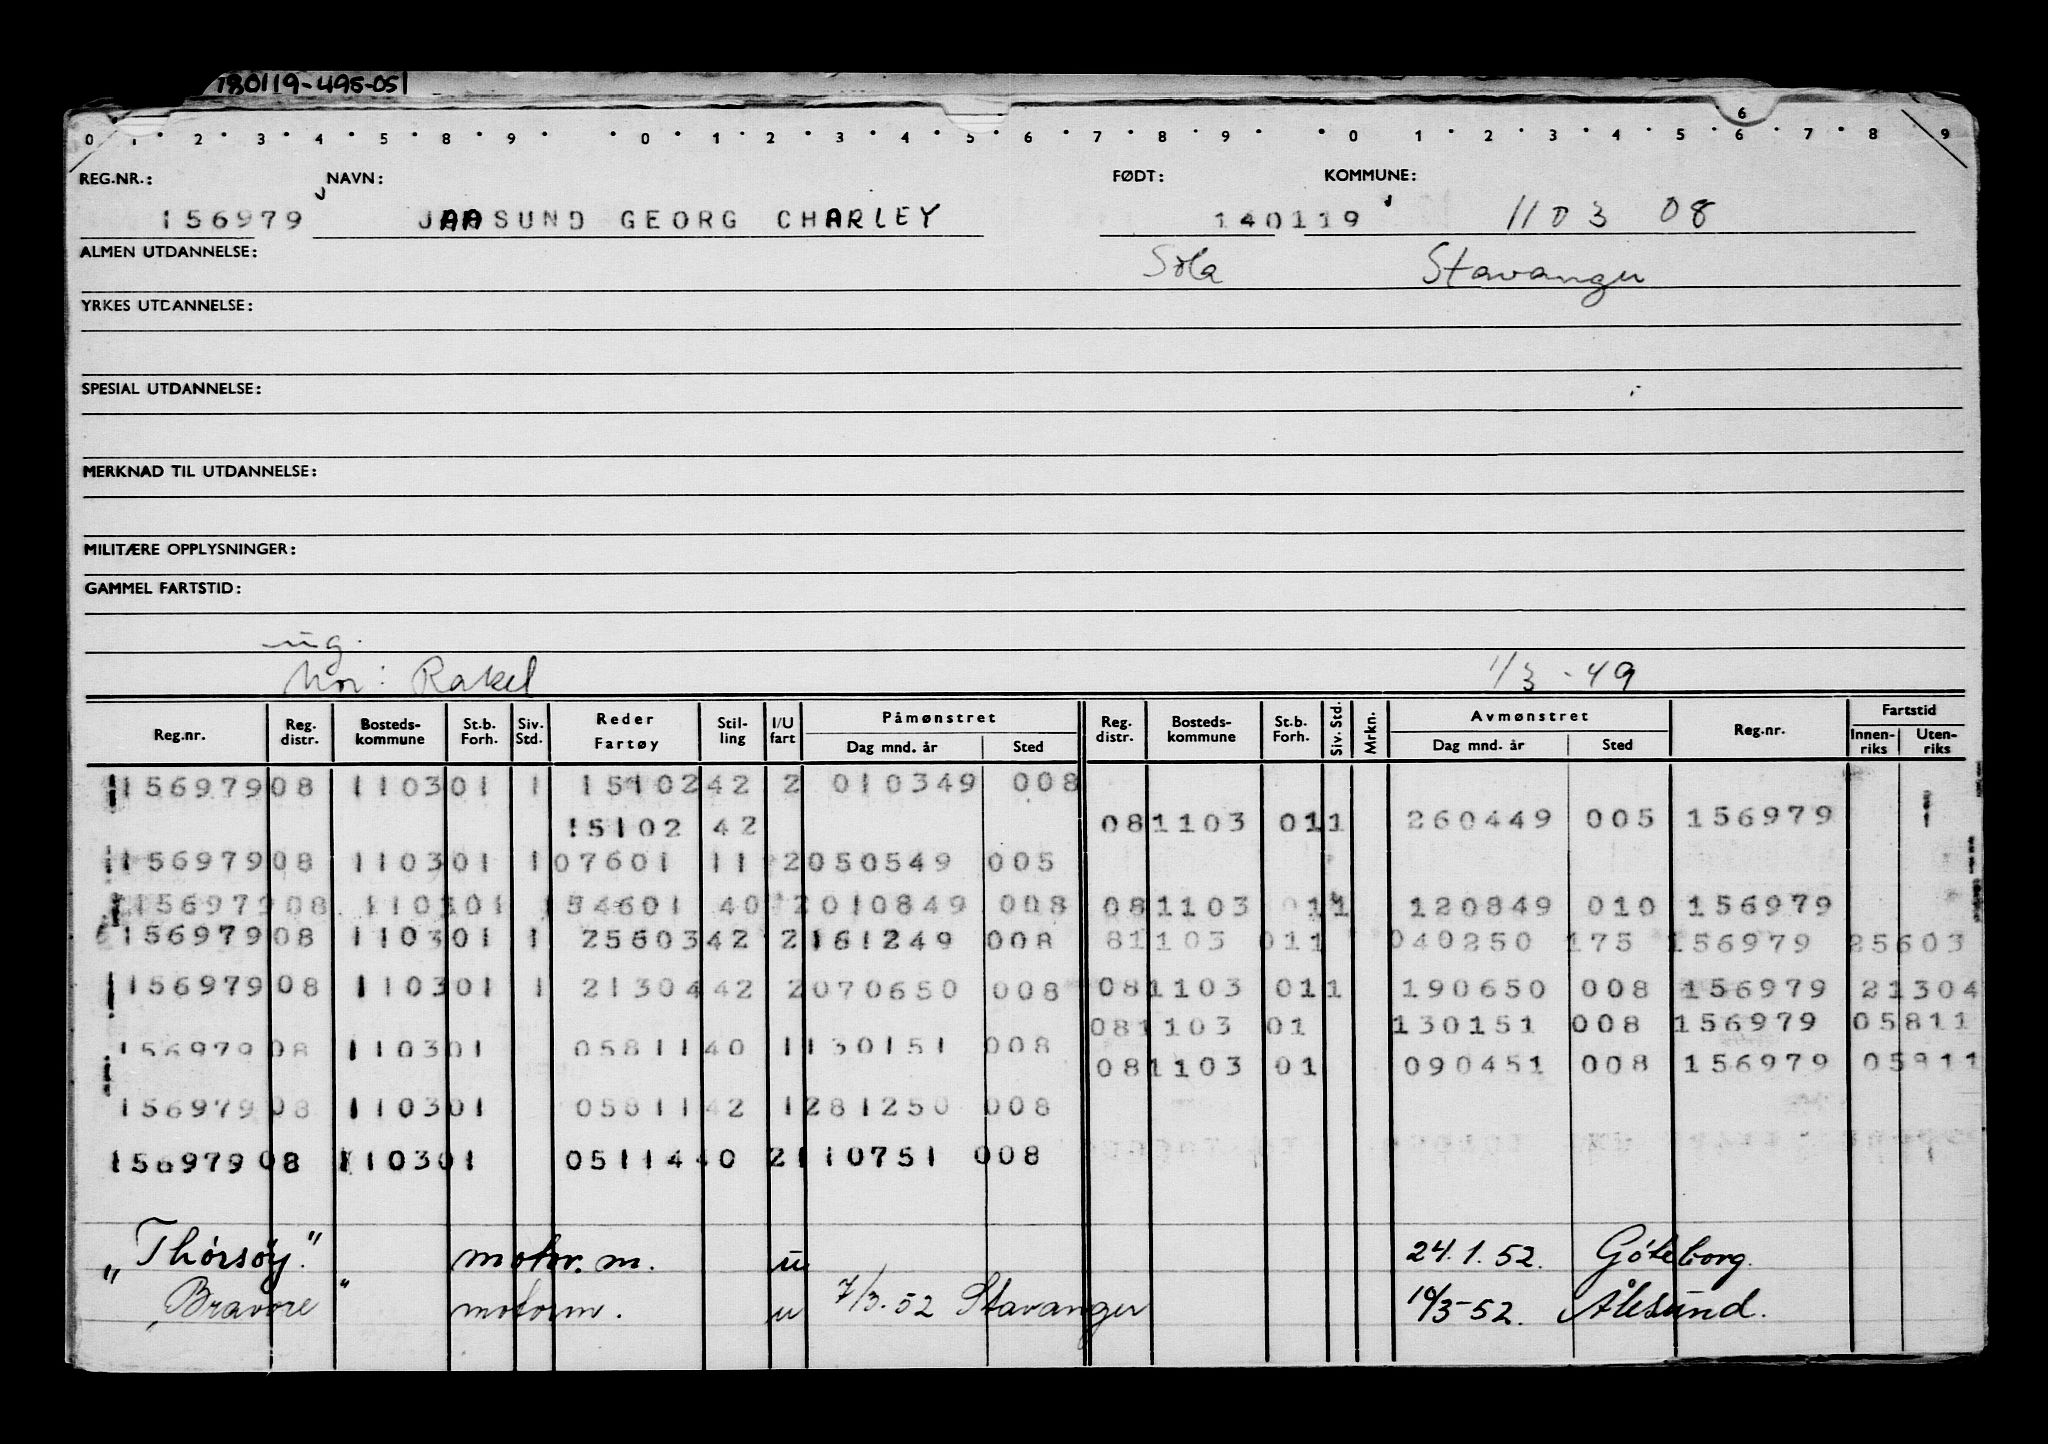 180119-495-051
0 1 2 3 4 5 8 9 0 1 2 3 4 5 6 7 8 9 0 1 2 3 4 5 6 7 8 9
6
REG.NR.: NAVN: FØDT: KOMMUNE:
156979 JAASUND GEORG CHARLEY 140119 1103 08
ALMEN UTDANNELSE: Sola Stavanger
YRKES UTDANNELSE:
SPESIAL UTDANNELSE:
MERKNAD TIL UTDANNELSE:
MILITÆRE OPPLYSNINGER:
GAMMEL FARTSTID:
ug.
Mor: Rakel 1/3-49
Reg.nr. Reg. distr. Bosteds-kommune St.b. Forh. Siv. Std. Reder Fartøy Stil-ling I/U fart Påmønstret Dag mnd. år Sted Reg. distr. Bosteds-kommune St.b. Forh. Siv. Std. Mrkn. Avmønstret Dag mnd. år Sted Reg.nr. Fartstid Innen-riks Uten-riks
156979 08 1103 01 1 15102 42 2 010349 008
15102 42 08 1103 01 1 260449 005 156979 1
156979 08 1103 01 1 07601 11 2 050549 005
156979 08 1103 01 1 54601 40 2 010849 008 08 1103 01 1 120849 010 156979
156979 08 1103 01 1 25603 42 2 161249 008 8 1103 01 1 040250 175 156979 25603
156979 08 1103 01 1 21304 42 2 070650 008 08 1103 01 1 190650 008 156979 21304
08 1103 01 130151 008 156979 05811
156979 08 1103 01 05811 40 1 130151 008
08 1103 01 090451 008 156979 05811
156979 08 1103 01 05811 42 1 281250 008
156979 08 1103 01 05114 40 2 110751 008
"Thorsøy." motor.m. u 24.1.52. Göteborg.
"Bravore" motorm. u 7/3.52 Stavanger 10/3-52. Ålesund.